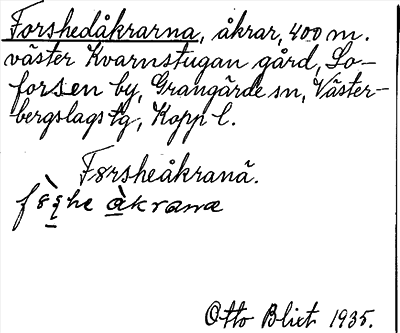 Forshedåkrarna, åkrar, 400 m.
väster Kvarnstugan gård, So-
forsen by, Grangärde sn, Väster-
bergslags tg, Kopp l.
Førsheåkranä.
åkrana
Otto Blixt 1935.